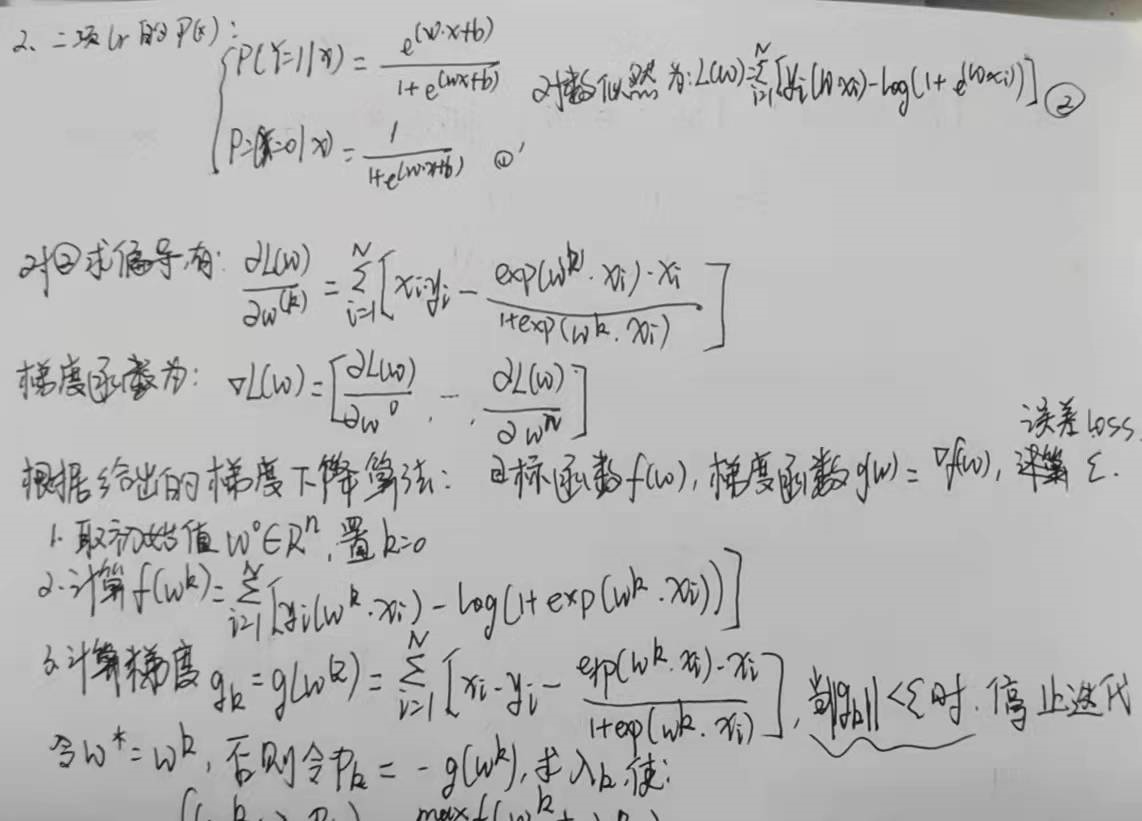 2、二项lr的P(x):
P(Y=1|x) = e^(w·x+b) / 1+e^(wx+b)
对数似然为: L(w)=∑_{i=1}^{N}[yi(w·xi)-log(1+e^(w·xi))] ②
P=(Y=0|x) = 1 / 1+e^(w·x+b) ①'
对②求偏导,有: ∂L(w)/∂w^(k) = ∑_{i=1}^{N}[xi·yi - exp(w^k·xi)·xi / 1+exp(w^k·xi)]
梯度函数为: ▽L(w)=[∂L(w)/∂w^0, …, ∂L(w)/∂w^n]
误差loss.
根据给出的梯度下降算法: 目标函数f(w), 梯度函数g(w)=▽f(w), 计算 ε.
1. 取初始值 w^0∈R^n, 置k=0
2. 计算f(w^k)=∑_{i=1}^{N}[yi(w^k·xi)-log(1+exp(w^k·xi))]
3. 计算梯度 g_k=g(w^k)=∑_{i=1}^{N}[xi·yi - exp(w^k·xi)·xi / 1+exp(w^k·xi)], 当||g_k||<ε时, 停止迭代
令w*=w^k, 否则令P_k=-g(w^k), 求λ_k, 使: